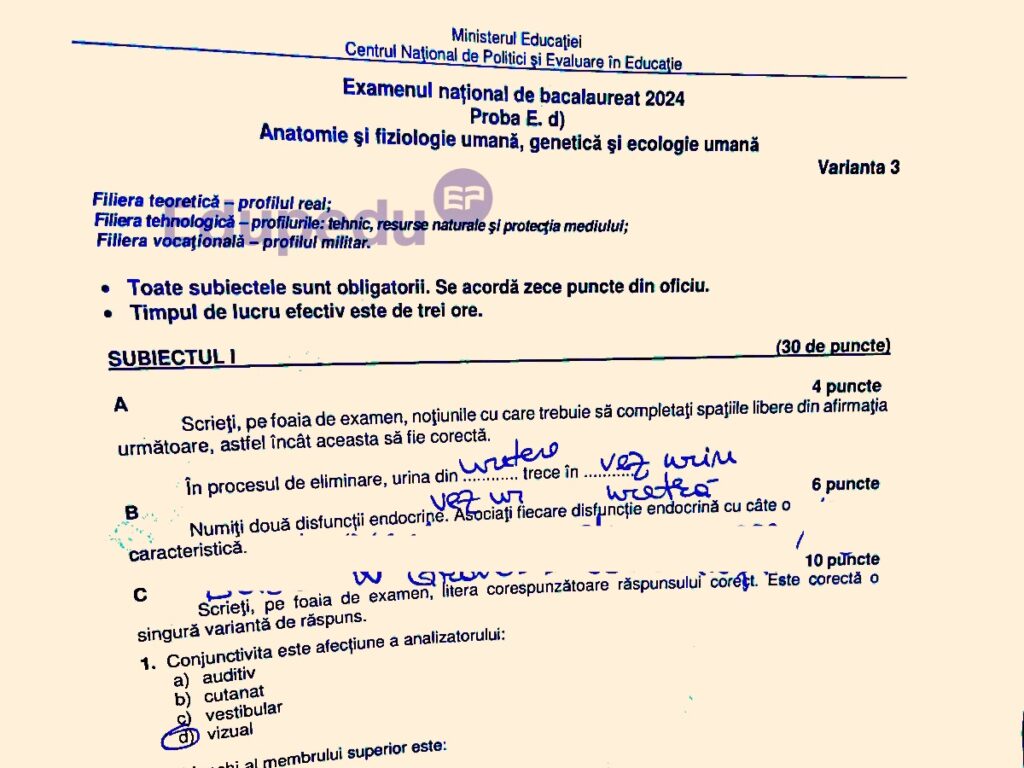 Ministerul Educației
Centrul Național de Politici și Evaluare în Educație
Examenul național de bacalaureat 2024
Proba E. d)
Anatomie și fiziologie umană, genetică și ecologie umană
Varianta 3
EP
Edupedu
Filiera teoretică – profilul real;
Filiera tehnologică – profilurile: tehnic, resurse naturale și protecția mediului;
Filiera vocațională – profilul militar.
• Toate subiectele sunt obligatorii. Se acordă zece puncte din oficiu.
• Timpul de lucru efectiv este de trei ore.
SUBIECTUL I (30 de puncte)
A 4 puncte
Scrieți, pe foaia de examen, noțiunile cu care trebuie să completați spațiile libere din afirmația
următoare, astfel încât aceasta să fie corectă.
uretere vez urin
În procesul de eliminare, urina din ............ trece în ...........
vez ur uretră
B 6 puncte
Numiți două disfuncții endocrine. Asociați fiecare disfuncție endocrină cu câte o
caracteristică.
C 10 puncte
Scrieți, pe foaia de examen, litera corespunzătoare răspunsului corect. Este corectă o
singură variantă de răspuns.
1. Conjunctivita este afecțiune a analizatorului:
a) auditiv
b) cutanat
c) vestibular
d) vizual
al membrului superior este: